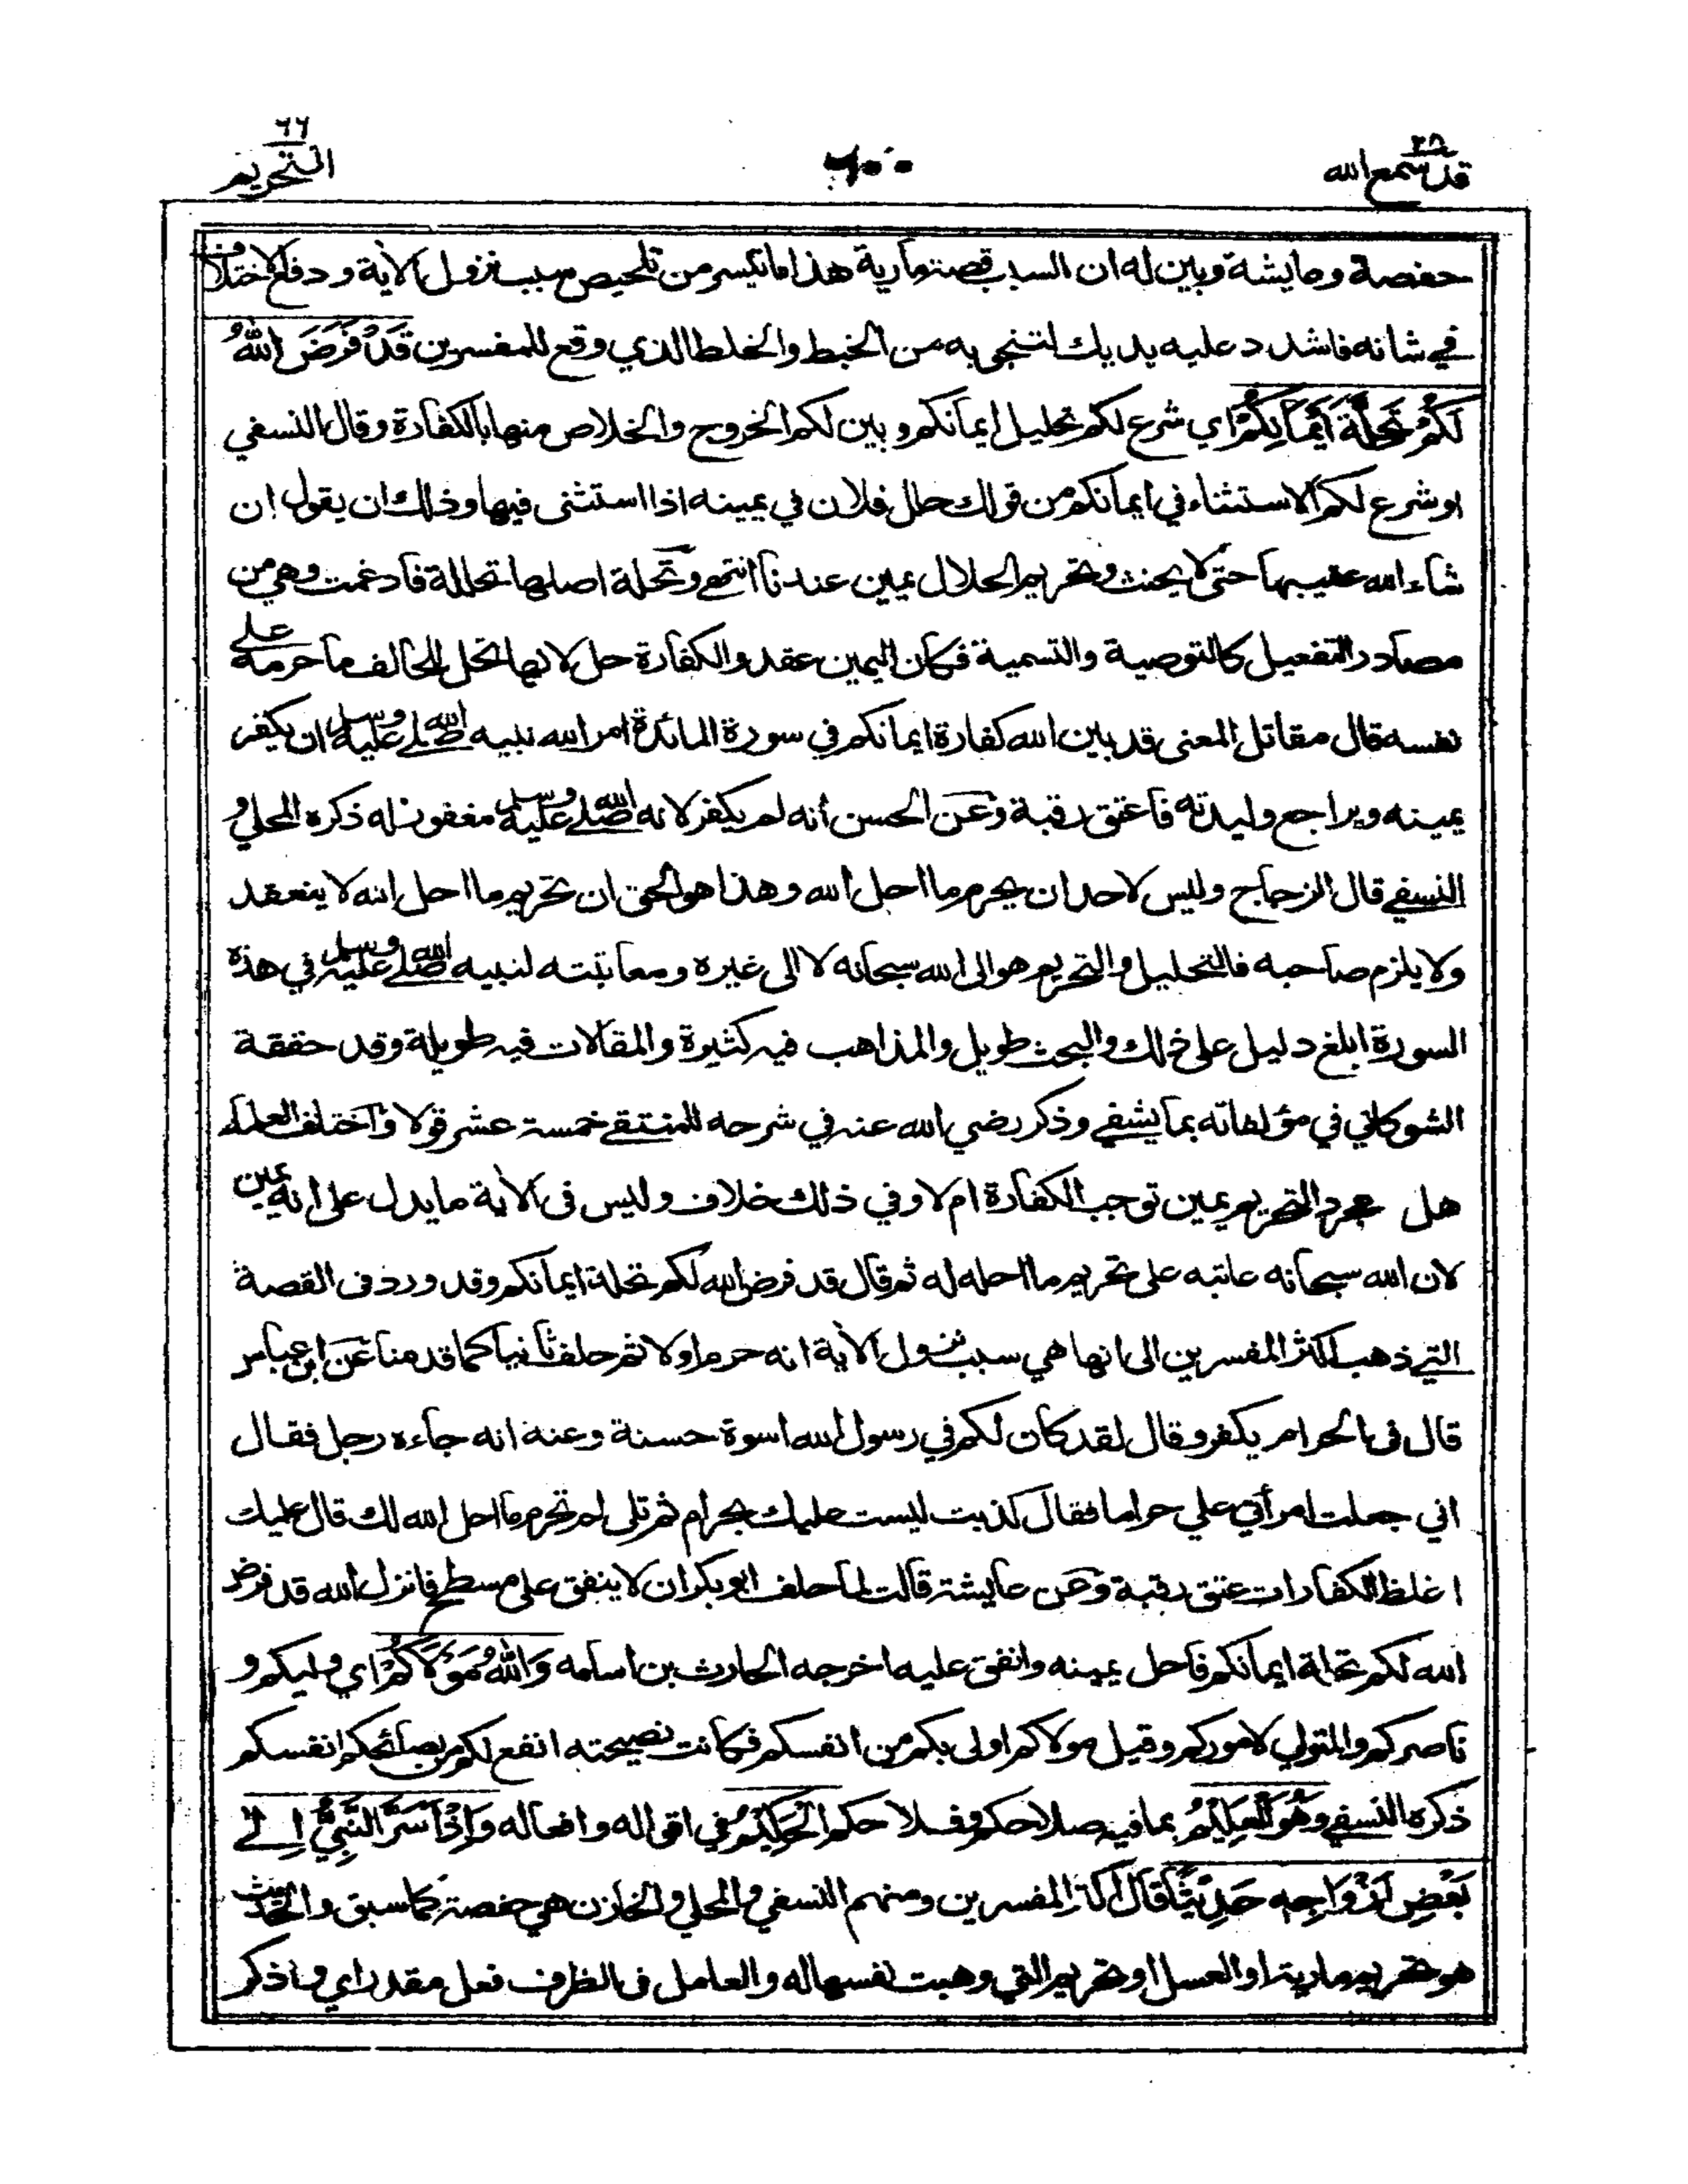 قد سمع الله ٢٨
٦٠٠
التحريم ٦٦
حفصة وعايشة وبين له ان السبب قصة مارية هذا ما تيسر من تلخيص سبب نزول الآية ودفع الاختلاف
في شانه فاشدد عليه يديك لتنجى به من الخبط والخلط الذي وقع للمفسرين قَدْ فَرَضَ اللّٰهُ
لَكُمْ تَحِلَّةَ أَيْمَانِكُمْ اي شرع لكم تحليل ايمانكم وبين لكم الخروج والخلاص منها بالكفارة وقال النسفي
او شرع لكم الاستثناء في ايمانكم من قولك حلل فلان في يمينه اذا استثنى فيها وذلك ان يقول ان
شاء الله عقيبها حتى لا يحنث وتحريم الحلال يمين عندنا انتهى وتحلة اصلها تحللة فادغمت وهي من
مصادر التفعيل كالتوصية والتسمية فكان اليمين عقد والكفارة حل لانها تحل للحالف ما حرمه على
نفسه قال مقاتل المعنى قد بين الله كفارة ايمانكم في سورة المائدة امر الله نبيه صلى الله عليه وسلم ان يكفر
يمينه ويراجع وليدته فاعتق رقبة وعن الحسن أنه لم يكفر لانه صلى الله عليه وسلم مغفور له ذكره المحلي و
النسفي قال الزجاج وليس لاحد ان يحرم ما احل الله وهذا هو الحق ان تحريم ما احل الله لا ينعقد
ولا يلزم صاحبه فالتحليل والتحريم هو الى الله سبحانه لا الى غيره ومعاتبته لنبيه صلى الله عليه وسلم في هذه
السورة ابلغ دليل على ذلك والبحث طويل والمذاهب فيه كثيرة والمقالات فيه طويلة وقد حققه
الشوكاني في مؤلفاته بما يشفي وذكر رضي الله عنه في شرحه للمنتقى خمسة عشر قولا واختلف العلماء
هل مجرد التحريم يمين توجب الكفارة ام لا وفي ذلك خلاف وليس فى الآية ما يدل على انه يمين
لان الله سبحانه عاتبه على تحريم ما احله له ثم قال قد فرض الله لكم تحلة ايمانكم وقد ورد فى القصة
التي ذهب اكثر المفسرين الى انها هي سبب نزول الآية انه حرم اولا ثم حلف ثانيا كما قدمنا عن ابن عباس
قال فى الحرام يكفر وقال لقد كان لكم في رسول الله اسوة حسنة وعنه انه جاءه رجل فقال
اني جعلت امرأتي علي حراما فقال كذبت ليست عليك بحرام ثم تلى لم تحرم ما احل الله لك قال عليك
اغلظ الكفارات عتق رقبة وعن عايشة قالت لما حلف ابو بكر ان لا ينفق على مسطح فانزل الله قد فرض
الله لكم تحلة ايمانكم فاحل يمينه وانفق عليه اخرجه الحارث بن اسامه وَاللّٰهُ مَوْلَاكُمْ اي وليكم و
ناصركم والمتولي لاموركم وقيل مولاكم اولى بكم من انفسكم فكانت نصيحته انفع لكم من نصائحكم انفسكم
ذكره النسفي وَهُوَ الْعَلِيْمُ بما فيه صلاحكم وفلاحكم الْحَكِيْمُ في اقواله وافعاله وَاِذْ اَسَرَّ النَّبِيُّ اِلٰى
بَعْضِ اَزْوَاجِهٖ حَدِيْثًا قال اكثر المفسرين ومنهم النسفي والمحلي والخازن هي حفصة كما سبق والحديث
هو تحريم مارية او العسل او تحريم التي وهبت نفسها له والعامل فى الظرف فعل مقدر اي واذكر